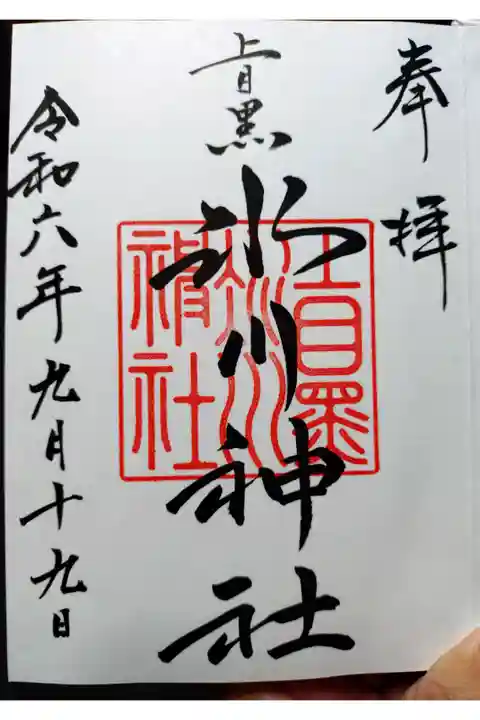 奉拝
上目黒
氷川神社
上目黒氷川神社
令和六年九月十九日